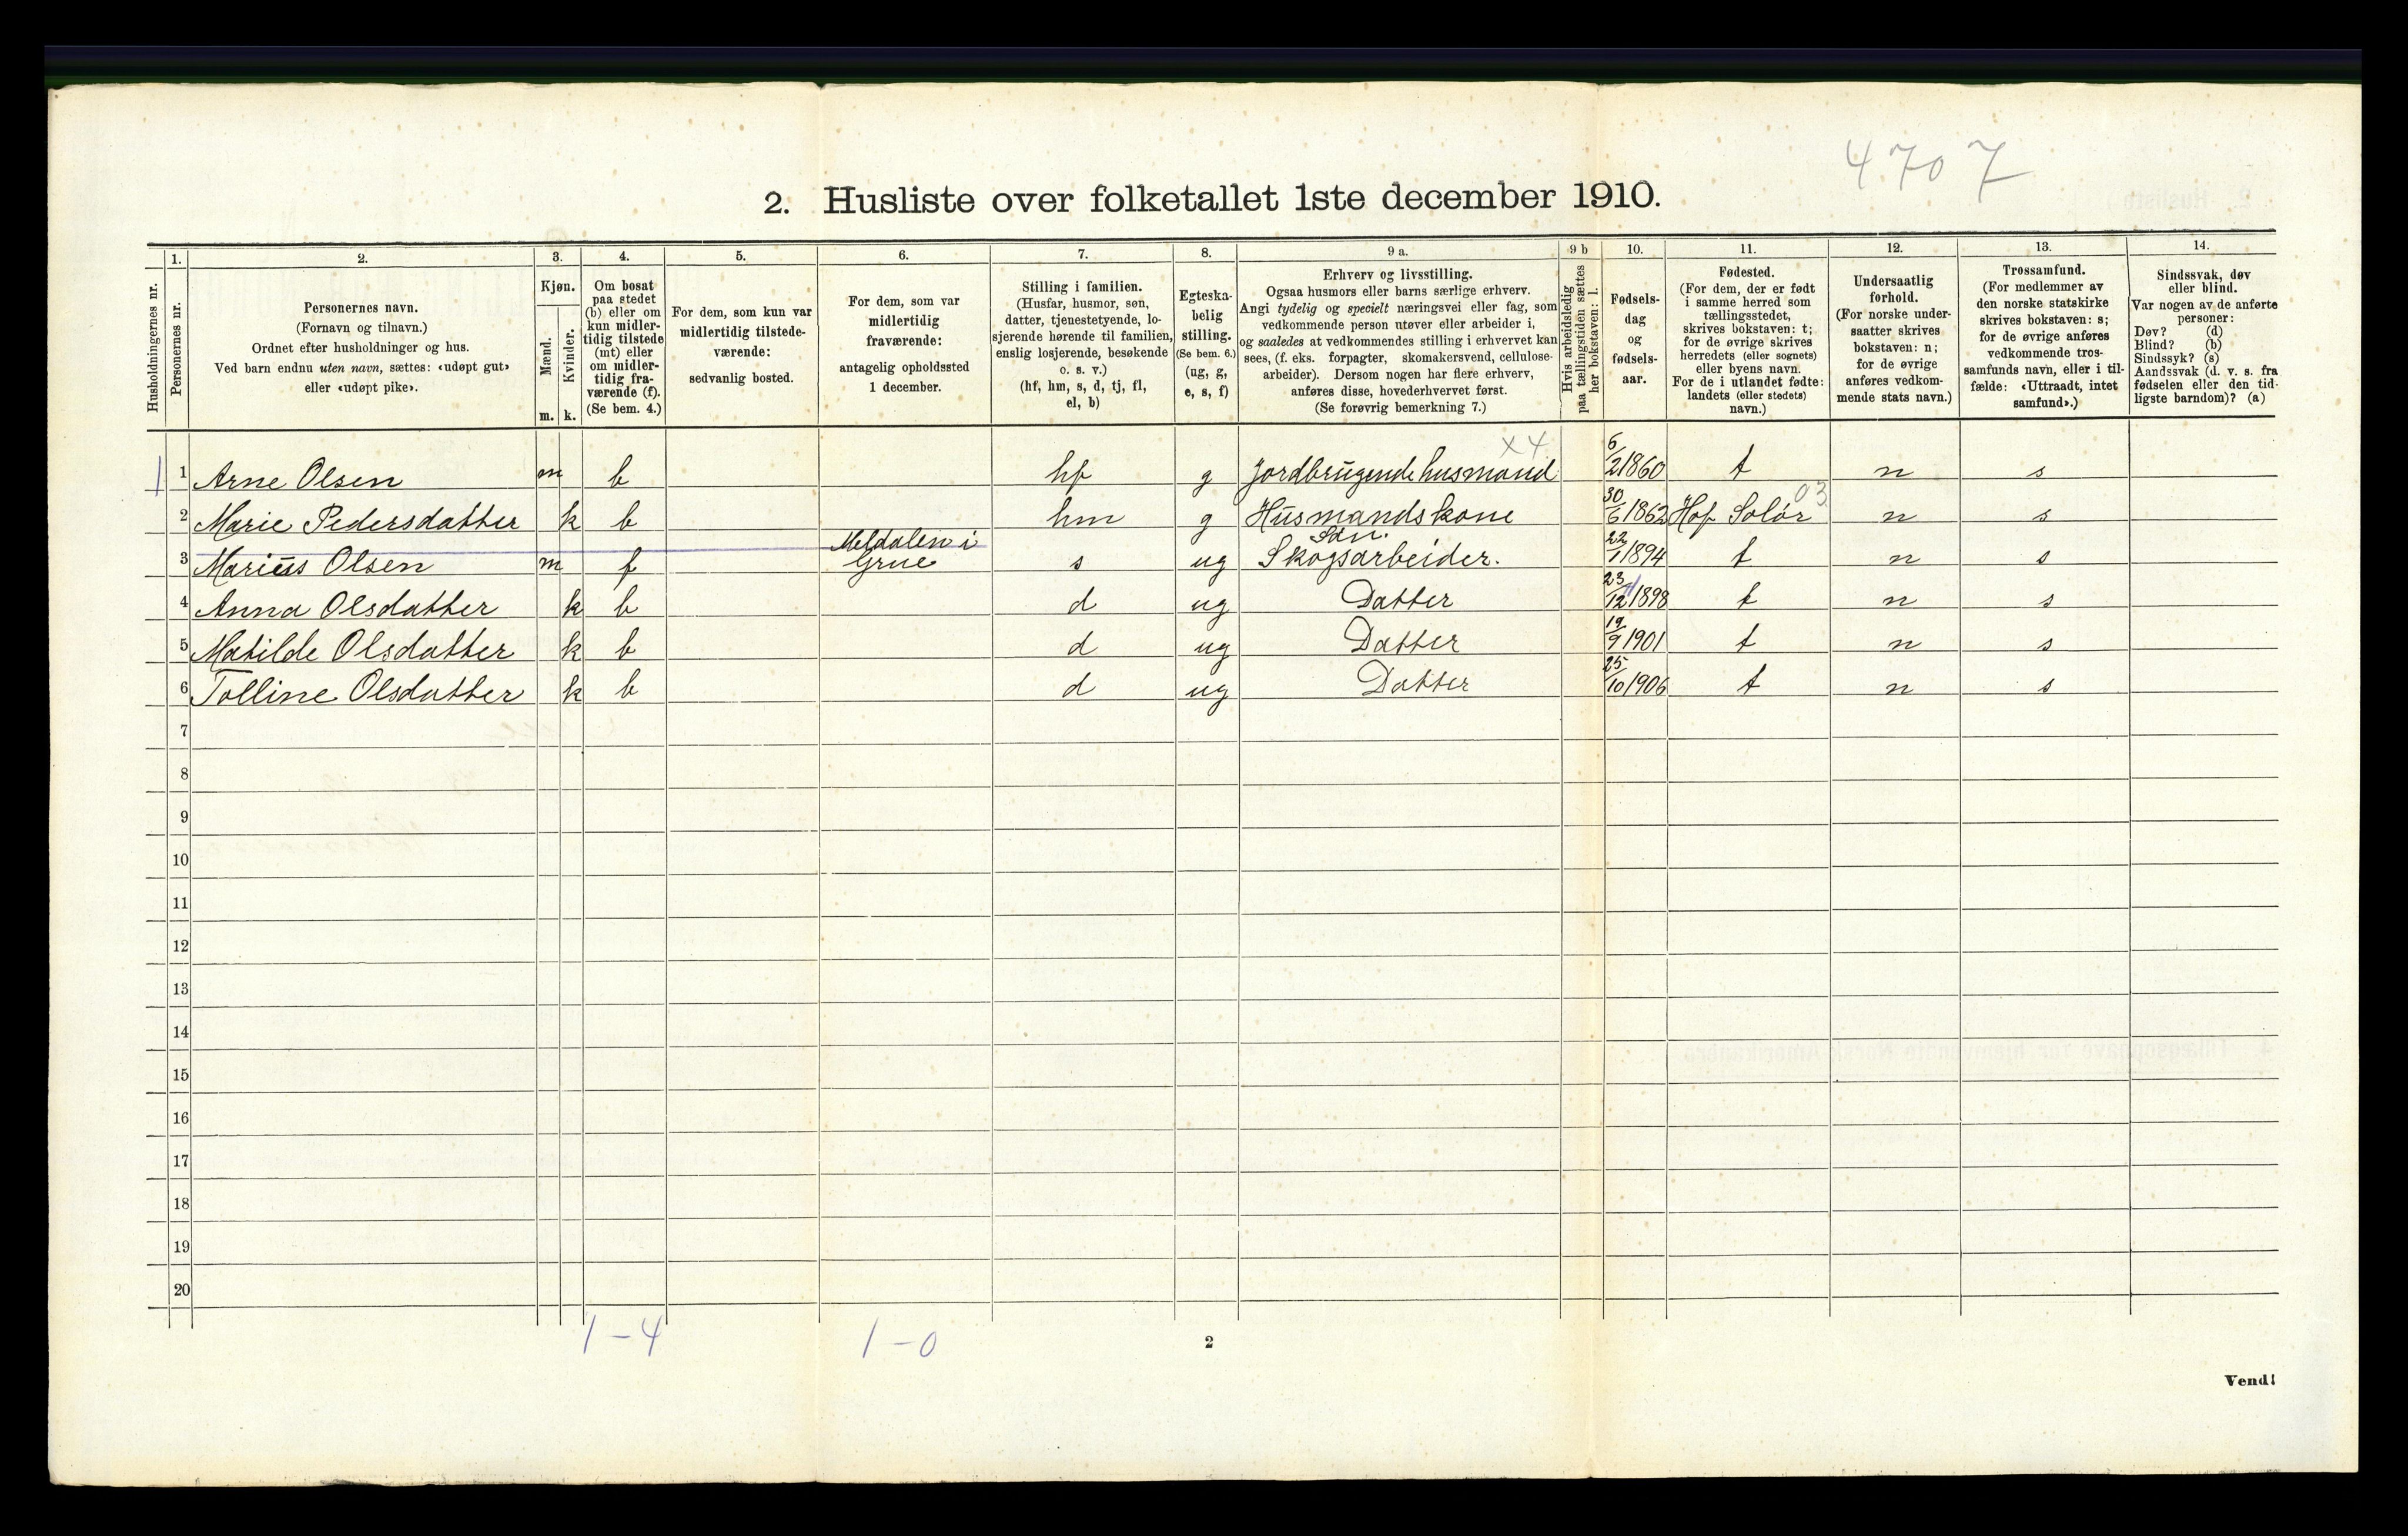 4707
2. Husliste over folketallet 1ste december 1910.
Husholdningernes nr.
1.
Personernes nr.
2.
Personernes navn.
(Fornavn og tilnavn.)
Ordnet efter husholdninger og hus.
Ved barn endnu uten navn, sættes: «udøpt gut»
eller «udøpt pike».
3.
Kjøn.
Mænd.
m.
Kvinder.
k.
4.
Om bosat
paa stedet
(b) eller om
kun midler-
tidig tilstede
(mt) eller
om midler-
tidig fra-
værende (f).
(Se bem. 4.)
5.
For dem, som kun var
midlertidig tilstede-
værende:
sedvanlig bosted.
6.
For dem, som var
midlertidig
fraværende:
antagelig opholdssted
1 december.
7.
Stilling i familien.
(Husfar, husmor, søn,
datter, tjenestetyende, lo-
sjerende hørende til familien,
enslig losjerende, besøkende
o. s. v.)
(hf, hm, s, d, tj, fl,
el, b)
8.
Egteska-
belig
stilling.
(Se bem. 6.)
(ug, g,
e, s, f)
9 a.
Erhverv og livsstilling.
Ogsaa husmors eller barns særlige erhverv.
Angi tydelig og specielt næringsvei eller fag, som
vedkommende person utøver eller arbeider i,
og saaledes at vedkommendes stilling i erhvervet kan
sees, (f. eks. forpagter, skomakersvend, cellulose-
arbeider). Dersom nogen har flere erhverv,
anføres disse, hovederhvervet først.
(Se forøvrig bemerkning 7.)
9 b
Hvis arbeidsledig
paa tællingstiden sættes
her bokstaven: l.
10.
Fødsels-
dag
og
fødsels-
aar.
11.
Fødested.
(For dem, der er født
i samme herred som
tællingsstedet,
skrives bokstaven: t;
for de øvrige skrives
herredets (eller sognets)
eller byens navn.
For de i utlandet fødte:
landets (eller stedets)
navn.)
12.
Undersaatlig
forhold.
(For norske under-
saatter skrives
bokstaven: n;
for de øvrige
anføres vedkom-
mende stats navn.)
13.
Trossamfund.
(For medlemmer av
den norske statskirke
skrives bokstaven: s;
for de øvrige anføres
vedkommende tros-
samfunds navn, eller i til-
fælde: «Uttraadt, intet
samfund».)
14.
Sindssvak, døv
eller blind.
Var nogen av de anførte
personer:
Døv? (d)
Blind? (b)
Sindssyk? (s)
Aandssvak (d. v. s. fra
fødselen eller den tid-
ligste barndom)? (a)
x4
1 1 Arne Olsen m b hf g Jordbrugende husmand 6/2 1860 t n s
03
2 Marie Pedersdatter k b hm g Husmandskone 30/6 1862 Hof Solør n s
Meldalen i Sdn.
3 Marius Olsen m f Grue s ug Skogsarbeider. 22/1 1894 t n s
4 Anna Olsdatter k b d ug Datter 23/12 1898 t n s
5 Matilde Olsdatter k b d ug Datter 19/9 1901 t n s
6 Tolline Olsdatter k b d ug Datter 25/10 1906 t n s
7
8
9
10
11
12
13
14
15
16
17
18
19
20
1-4 1-0
2
Vend!